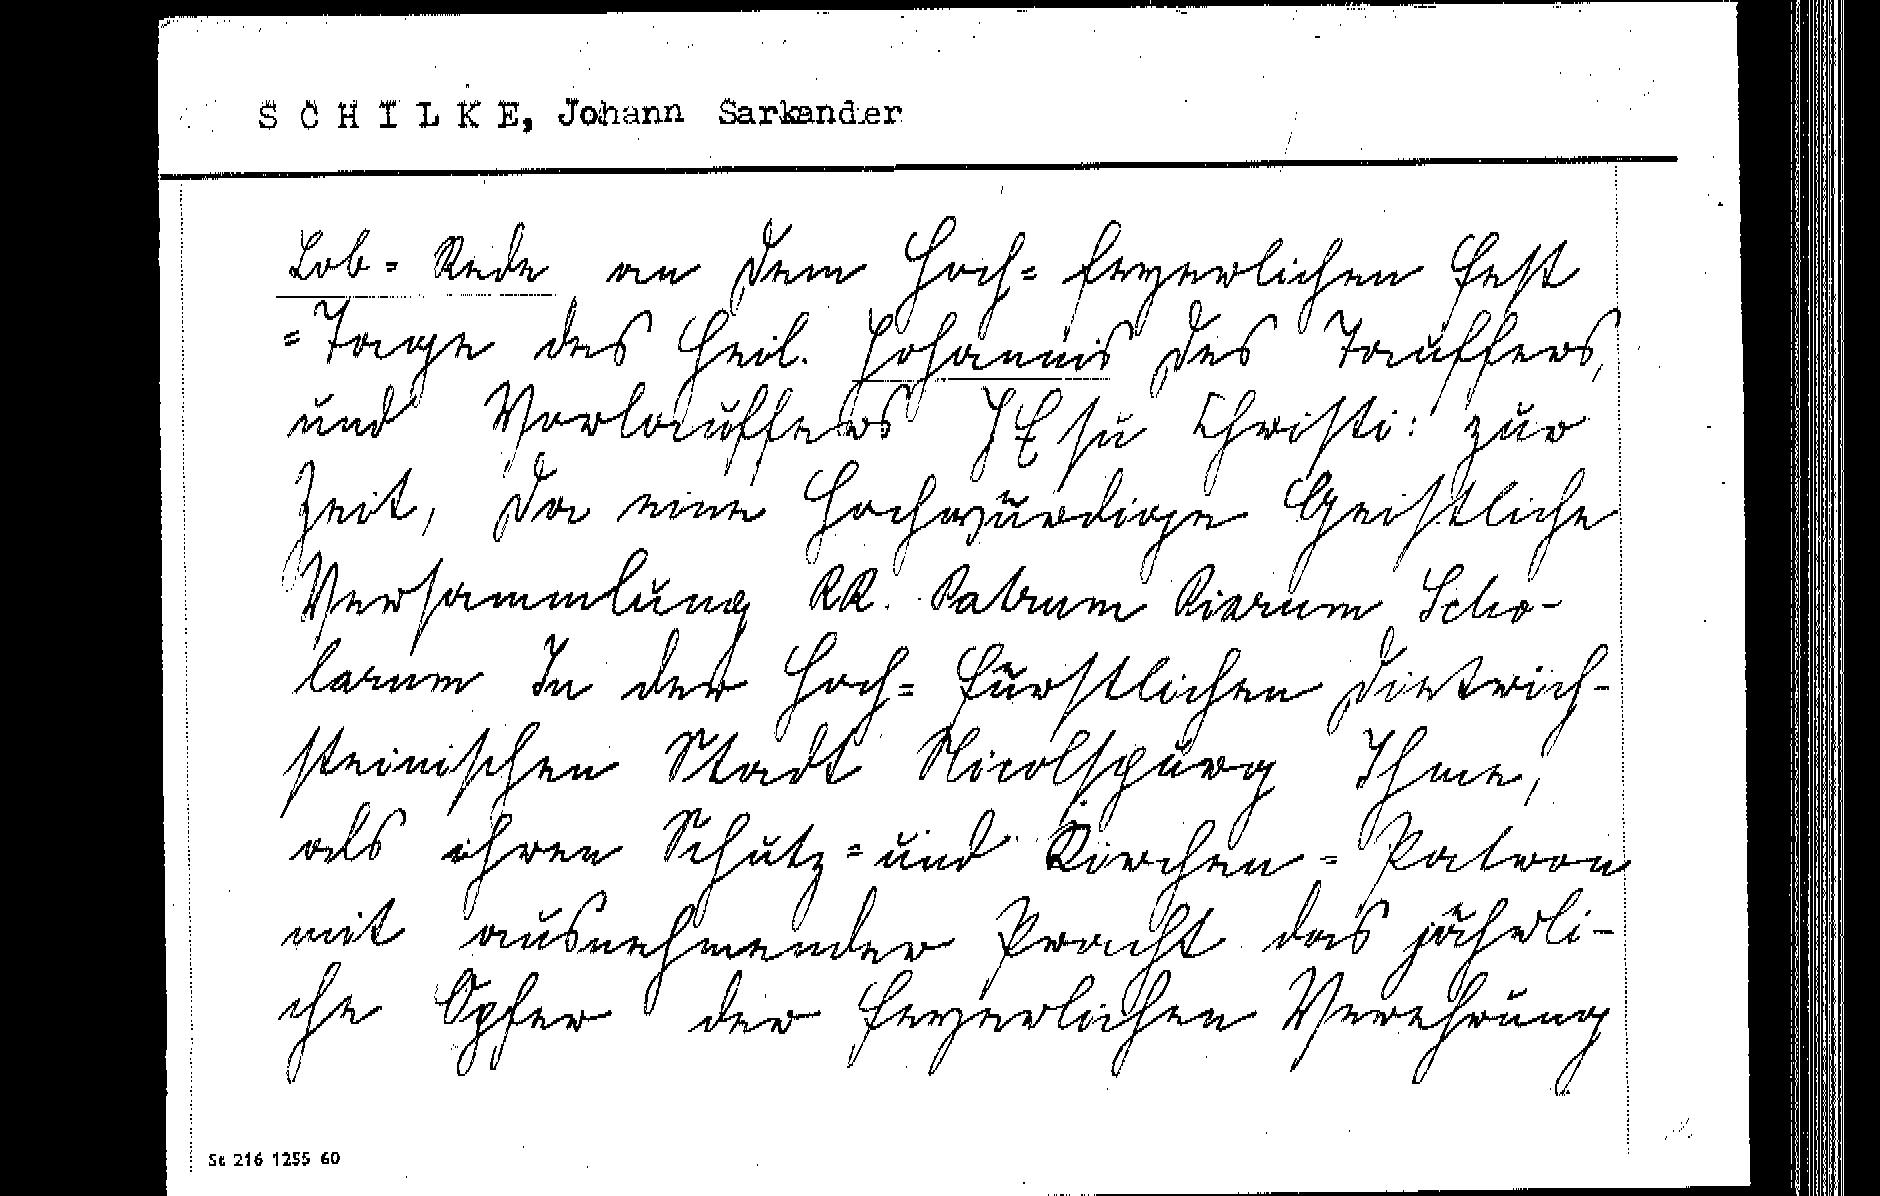 SCHILKE, Johann Sarkander
Lob= Rede an dem Hoch= feyerlichen Fest
=Tage des Heil. Johannis des Tauffers,
und Vorlauffers JEsu Christi: zur
Zeit, Da eine Hochwürdige Geistliche
Versammlung RR. Patrum Piarum Scho-
larum In der Hoch= Fürstlichen Dietrich-
steinischen Stadt Nicolspurg Ihme,
als ihren Schutz= und Kirchen= Patron
mit ausnehmender Pracht das jährli-
che Opfer der feyerlichen Verehrung
St 216 1255 60